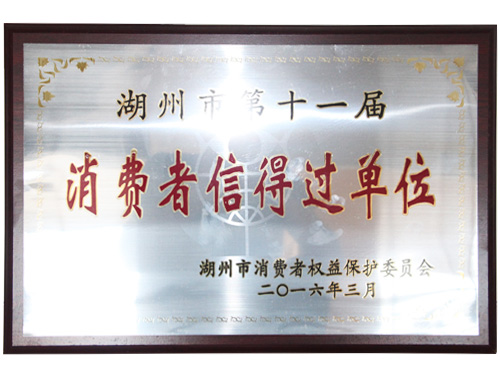 湖州市第十一届
消费者信得过单位
湖州市消费者权益保护委员会
二〇一六年三月